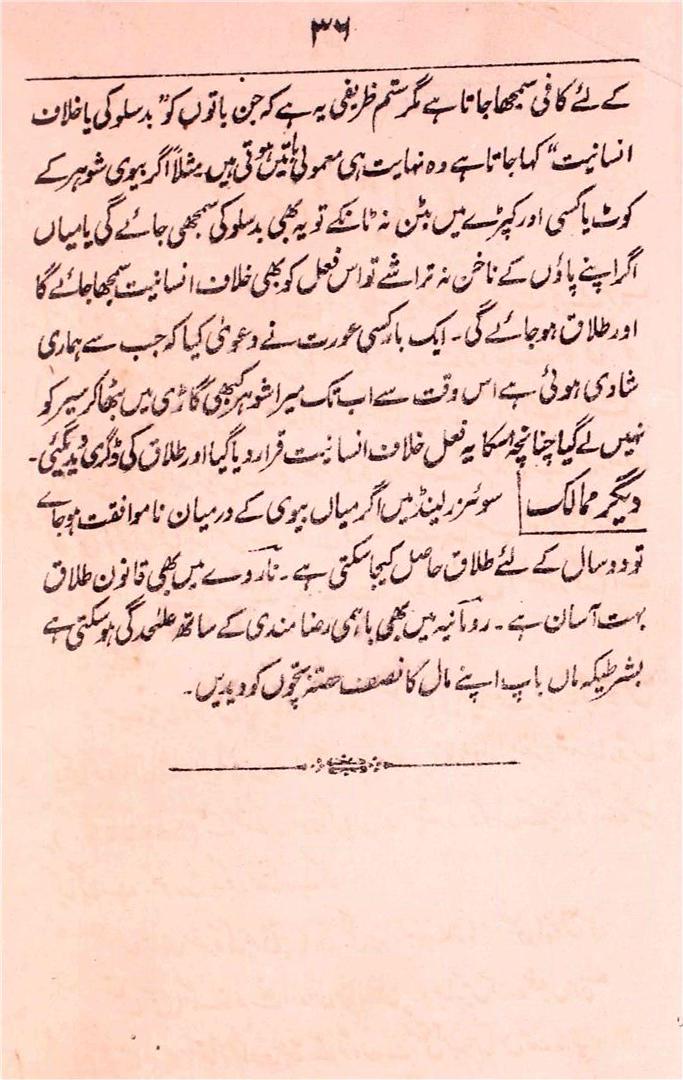 ۳۶
کے لئے کافی سمجھا جاتا ہے مگر ستم ظریفی یہ ہے کہ جن باتوں کو "بدسلوکی یا خلاف
انسانیت" کہا جاتا ہے وہ نہایت ہی معمولی باتیں ہوتی ہیں۔ مثلاً اگر بیوی شوہر کے
کوٹ یا کسی اور کپڑے میں بٹن نہ ٹانکے تو یہ بھی بدسلوکی سمجھی جائے گی یا میاں
اگر اپنے پاؤں کے ناخن نہ تراشے تو اس فعل کو بھی خلاف انسانیت سمجھا جائے گا
اور طلاق ہو جائے گی۔ ایک بار کسی عورت نے دعویٰ کیا کہ جب سے ہماری
شادی ہوئی ہے اس وقت سے اب تک میرا شوہر کبھی گاڑی میں بٹھا کر سیر کو
نہیں لے گیا چنانچہ اسکا یہ فعل خلاف انسانیت قرار دیا گیا اور طلاق کی ڈگری دیدیگئی۔
دیگر ممالک سوئزرلینڈ میں اگر میاں بیوی کے درمیان ناموافقت ہو جاے
تو دو سال کے لئے طلاق حاصل کیجاسکتی ہے۔ ناروے میں بھی قانون طلاق
بہت آسان ہے۔ رومانیہ میں بھی باہمی رضامندی کے ساتھ علٰحدگی ہو سکتی ہے
بشرطیکہ ماں باپ اپنے مال کا نصف حصّہ بچّوں کو دیدیں۔